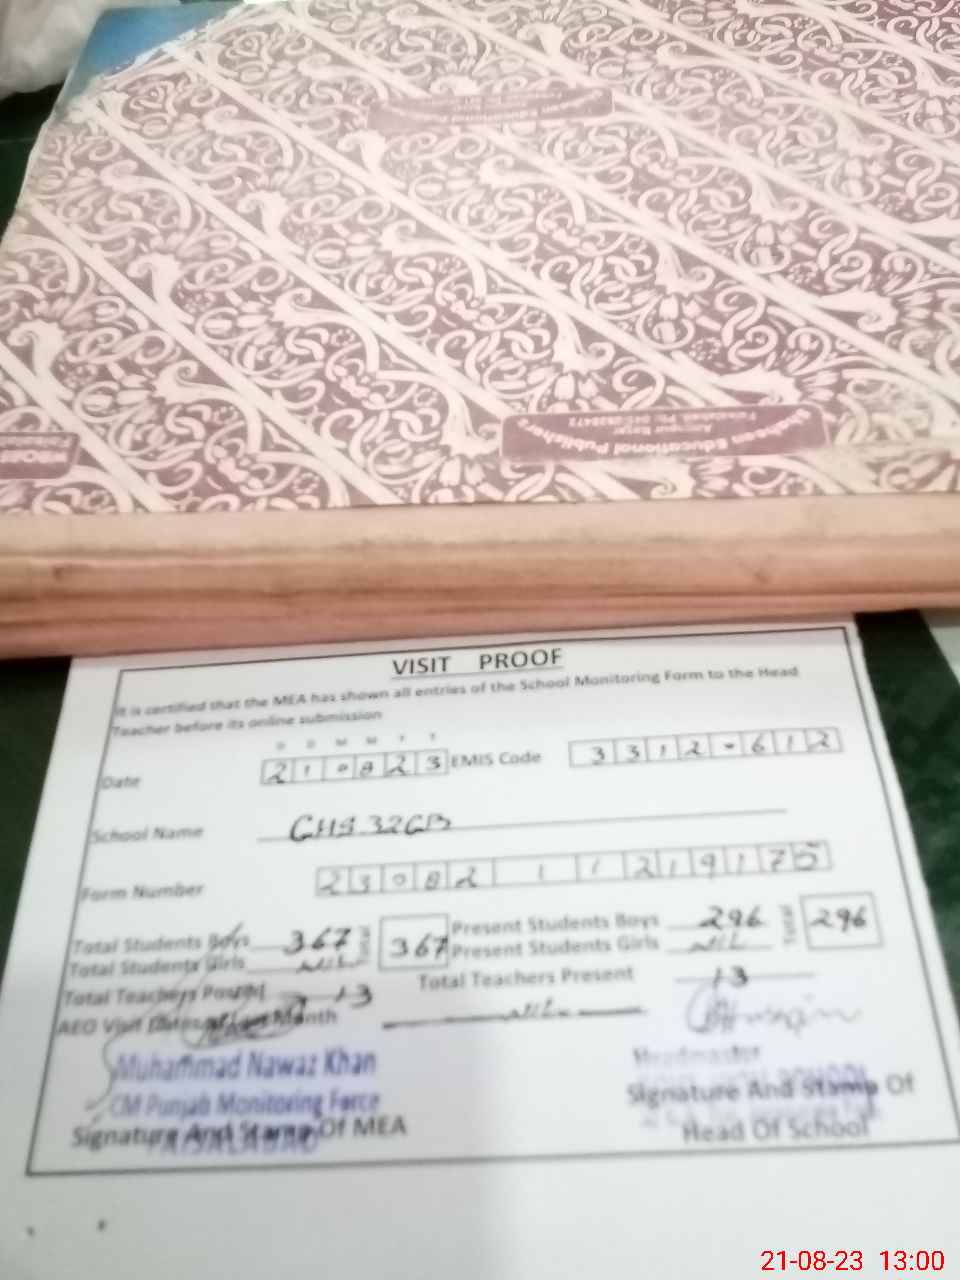 Shaheen Educational Publishers
VISIT PROOF
It is certified that the MEA has shown all entries of the School Monitoring Form to the Head
Teacher before its online submission
D D M M Y Y
Date 210823 EMIS Code 3312-612
School Name GHS 32GB
Form Number 23082 1 1 219175
Total Students Boys 367 Total 367 Present Students Boys 296 Total 296
Total Students Girls Nil Present Students Girls Nil
Total Teachers Posted 13 Total Teachers Present 13
AEO Visit Dates of Last Month Nil
Muhammad Nawaz Khan
CM Punjab Monitoring Force
FAISALABAD
Signature And Stamp Of MEA
Headmaster
Signature And Stamp Of
Head Of School
21-08-23 13:00